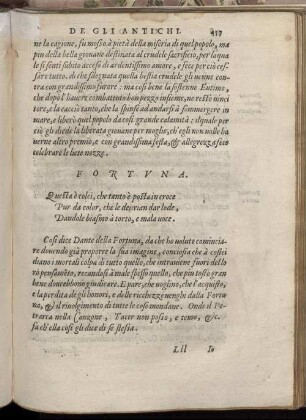 DE GLI ANTICHI. 417
ne la cagione, fu mosso à pietà della miseria di quel popolo, ma
piu della bella giouane destinata al crudele sacrificio, per la qua
le si sentì subito acceso di ardentissimo amore, e fece per ciò ces-
sare tutto. di che sdegnata quella bestia crudele gli uenne con-
tra con grandissimo furore: ma così bene la sostenne Eutimo,
che dopò l'hauere combattuto buon pezzo insieme, ne restò uinci
tore, e la cacciò tanto, che la spense ad andarsi à sommergere in
mare, e liberò quel popolo da così grande calamità: il quale per
ciò gli diede la liberata giouane per moglie, ch'egli non uolle ha
uerne altro premio, e con grandissima festa, & allegrezza fece
celebrare le liete nozze.
FORTVNA.
Questa è colei, che tanto è posta in croce
Pur da color, che le deurian dar lode,
Dandole biasmo à torto, e mala uoce.
Così dice Dante della Fortuna, da che ho uoluto comincia-
re douendo già proporre la sua imagine, conciosia che à costei
diano i mortali colpa di tutto quello, che intrauiene fuori del lo
ro pensamēto, recandosi à male spesso quello, che piu tosto gran
bene dourebbono giudicare. E pare, che uoglino, che l'acquisto,
e la perdita de gli honori, e delle ricchezze uenghi dalla Fortu
na, & il riuolgimento di tutte le cose mondane. Onde il Pe-
trarca nella Canzone, Tacer non posso, e temo, &c. fa
sì ch'ella così gli dice di se stessa.
Lll Io